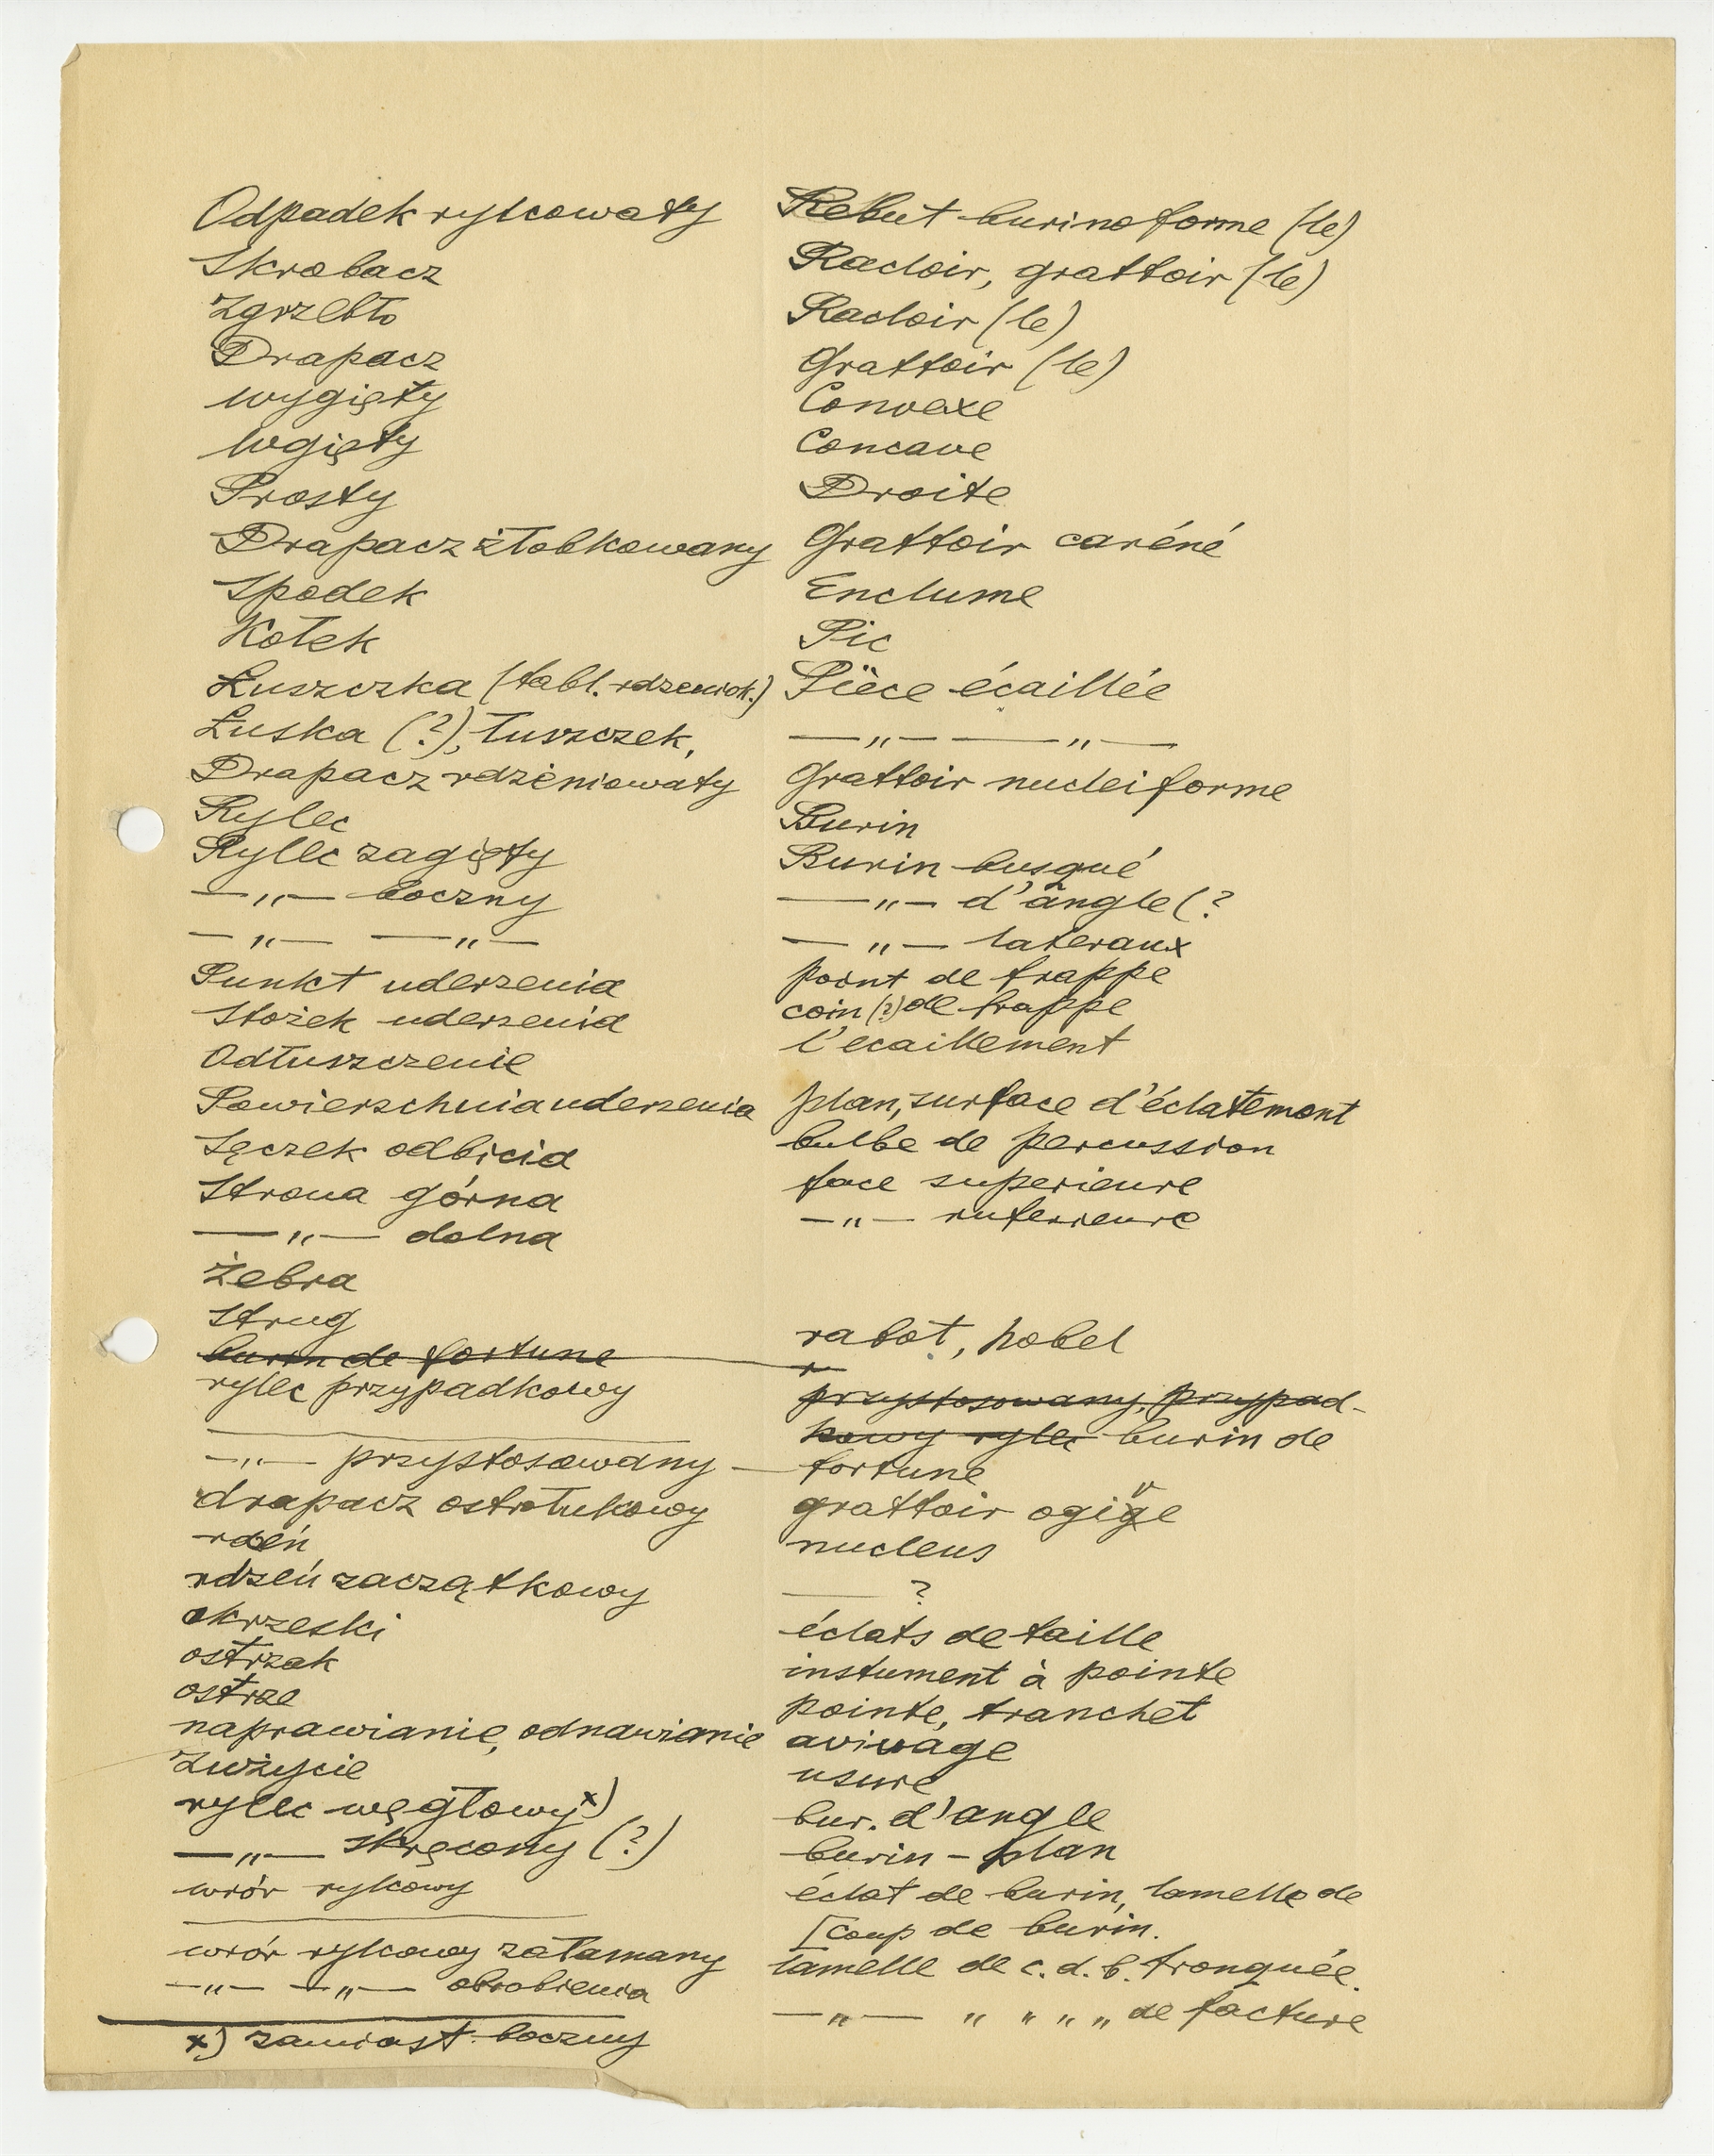 Odpadek rylcowaty Rebut burinoforme (le)
Skrobacz Racloir, grattoir (le)
Zgrzebło Racloir (le)
Drapacz Grattoir (le)
wygięty Convexe
Wgięty Concave
Prosty Droite
Drapacz żłobkowany Grattoir caréné
Spodek Enclume
Kołek Pic
Łuszczka (tabl. rdzeniok.) Pièce écaillée
Łuska (?), łuszczek, —„— —„—
Drapacz rdzeniowaty Grattoir nucleiforme
Rylec Burin
Rylec zagięty Burin busqué
—„— boczny —„— d'angle (?
—„— —„— —„— lateraux
Punkt uderzenia point de frappe
Stożek uderzenia coin (?) de frappe
Odłuszczenie l'ecaillement
Powierzchnia uderzenia plan, surface d'éclatement
Sęczek odbicia bulbe de percussion
Strona górna face superieure
—„— dolna —„— inferieure
Żebra
Strug rabot, hobel
burin de fortune
rylec przypadkowy przystosowany, przypad-
kowy rylec burin de
—„— przystosowany — fortune
drapacz ostrołukowy grattoir ogive
rdeń nucleus
rdzeń zaczątkowy — ?
okrzeski éclats de taille
ostrzak instument à pointe
ostrze pointe, tranchet
naprawianie, odnawianie avivage
Zużycie usure
rylec węgłowy x) bur. d'angle
—„— skręcony (?) burin - plan
wiór rylcowy éclat de burin, lamelle de
[coup de burin.
wiór rylcowy załamany lamelle de c. d. b. tronquée.
—„— —„— obrobienia —„— „ „ „ „ de facture
x) zamiast boczny